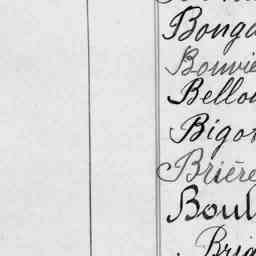 Bonga
Bouvie
Bellou
Bigot
Brière
Boul
Brig